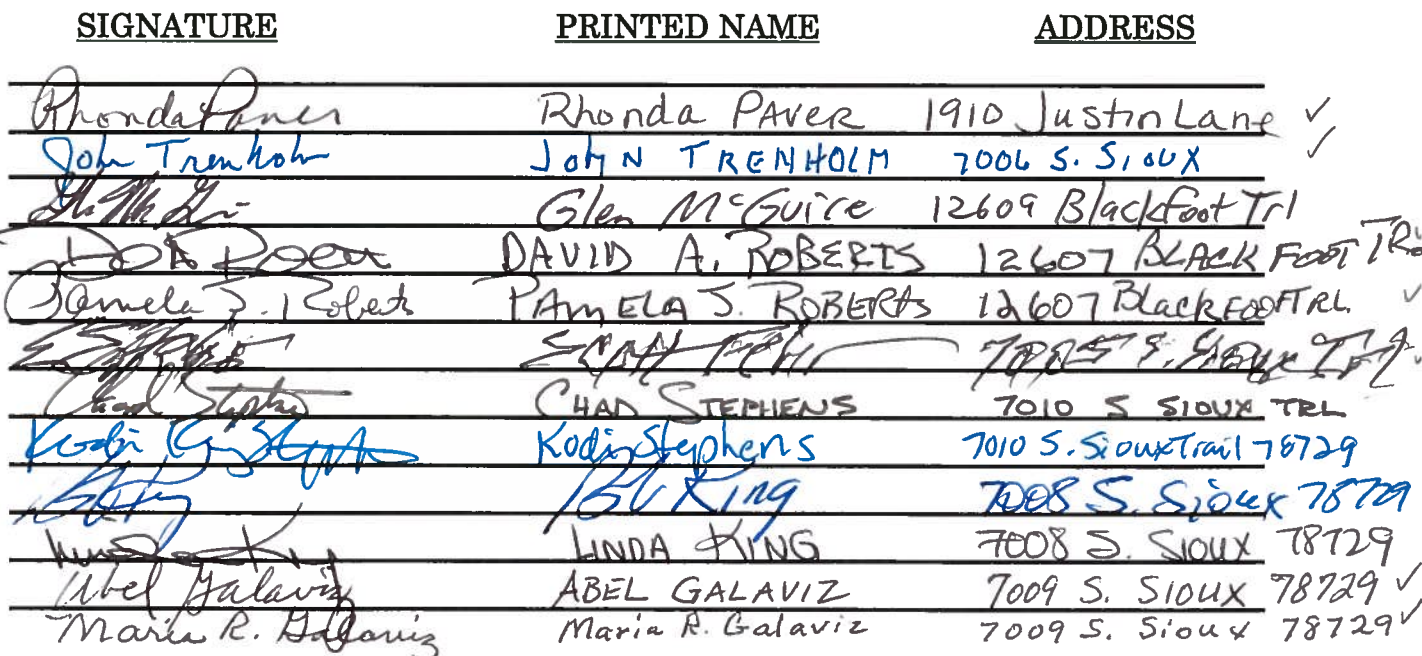 SIGNATURE PRINTED NAME ADDRESS
Rhonda Paver Rhonda PAVER 1910 Justin Lane ✓
John Trenholm JOHN TRENHOLM 7006 S. SIOUX ✓
Glen McGuire 12609 Blackfoot Trl
DAVID A. ROBERTS 12607 BLACK FOOT
Pamela S. Roberts PAMELA S. ROBERTS 12607 Blackfoot TRL ✓
7005 S. Sioux
Chad Stephens CHAD STEPHENS 7010 S SIOUX TRL
Kodi Kodi Stephens 7010 S. Sioux Trail 78729
King 7008 S. Sioux 78729
LINDA KING 7008 S. SIOUX 78729
Abel Galaviz ABEL GALAVIZ 7009 S. SIOUX 78729 ✓
Maria R. Galaviz Maria R. Galaviz 7009 S. Sioux 78729 ✓